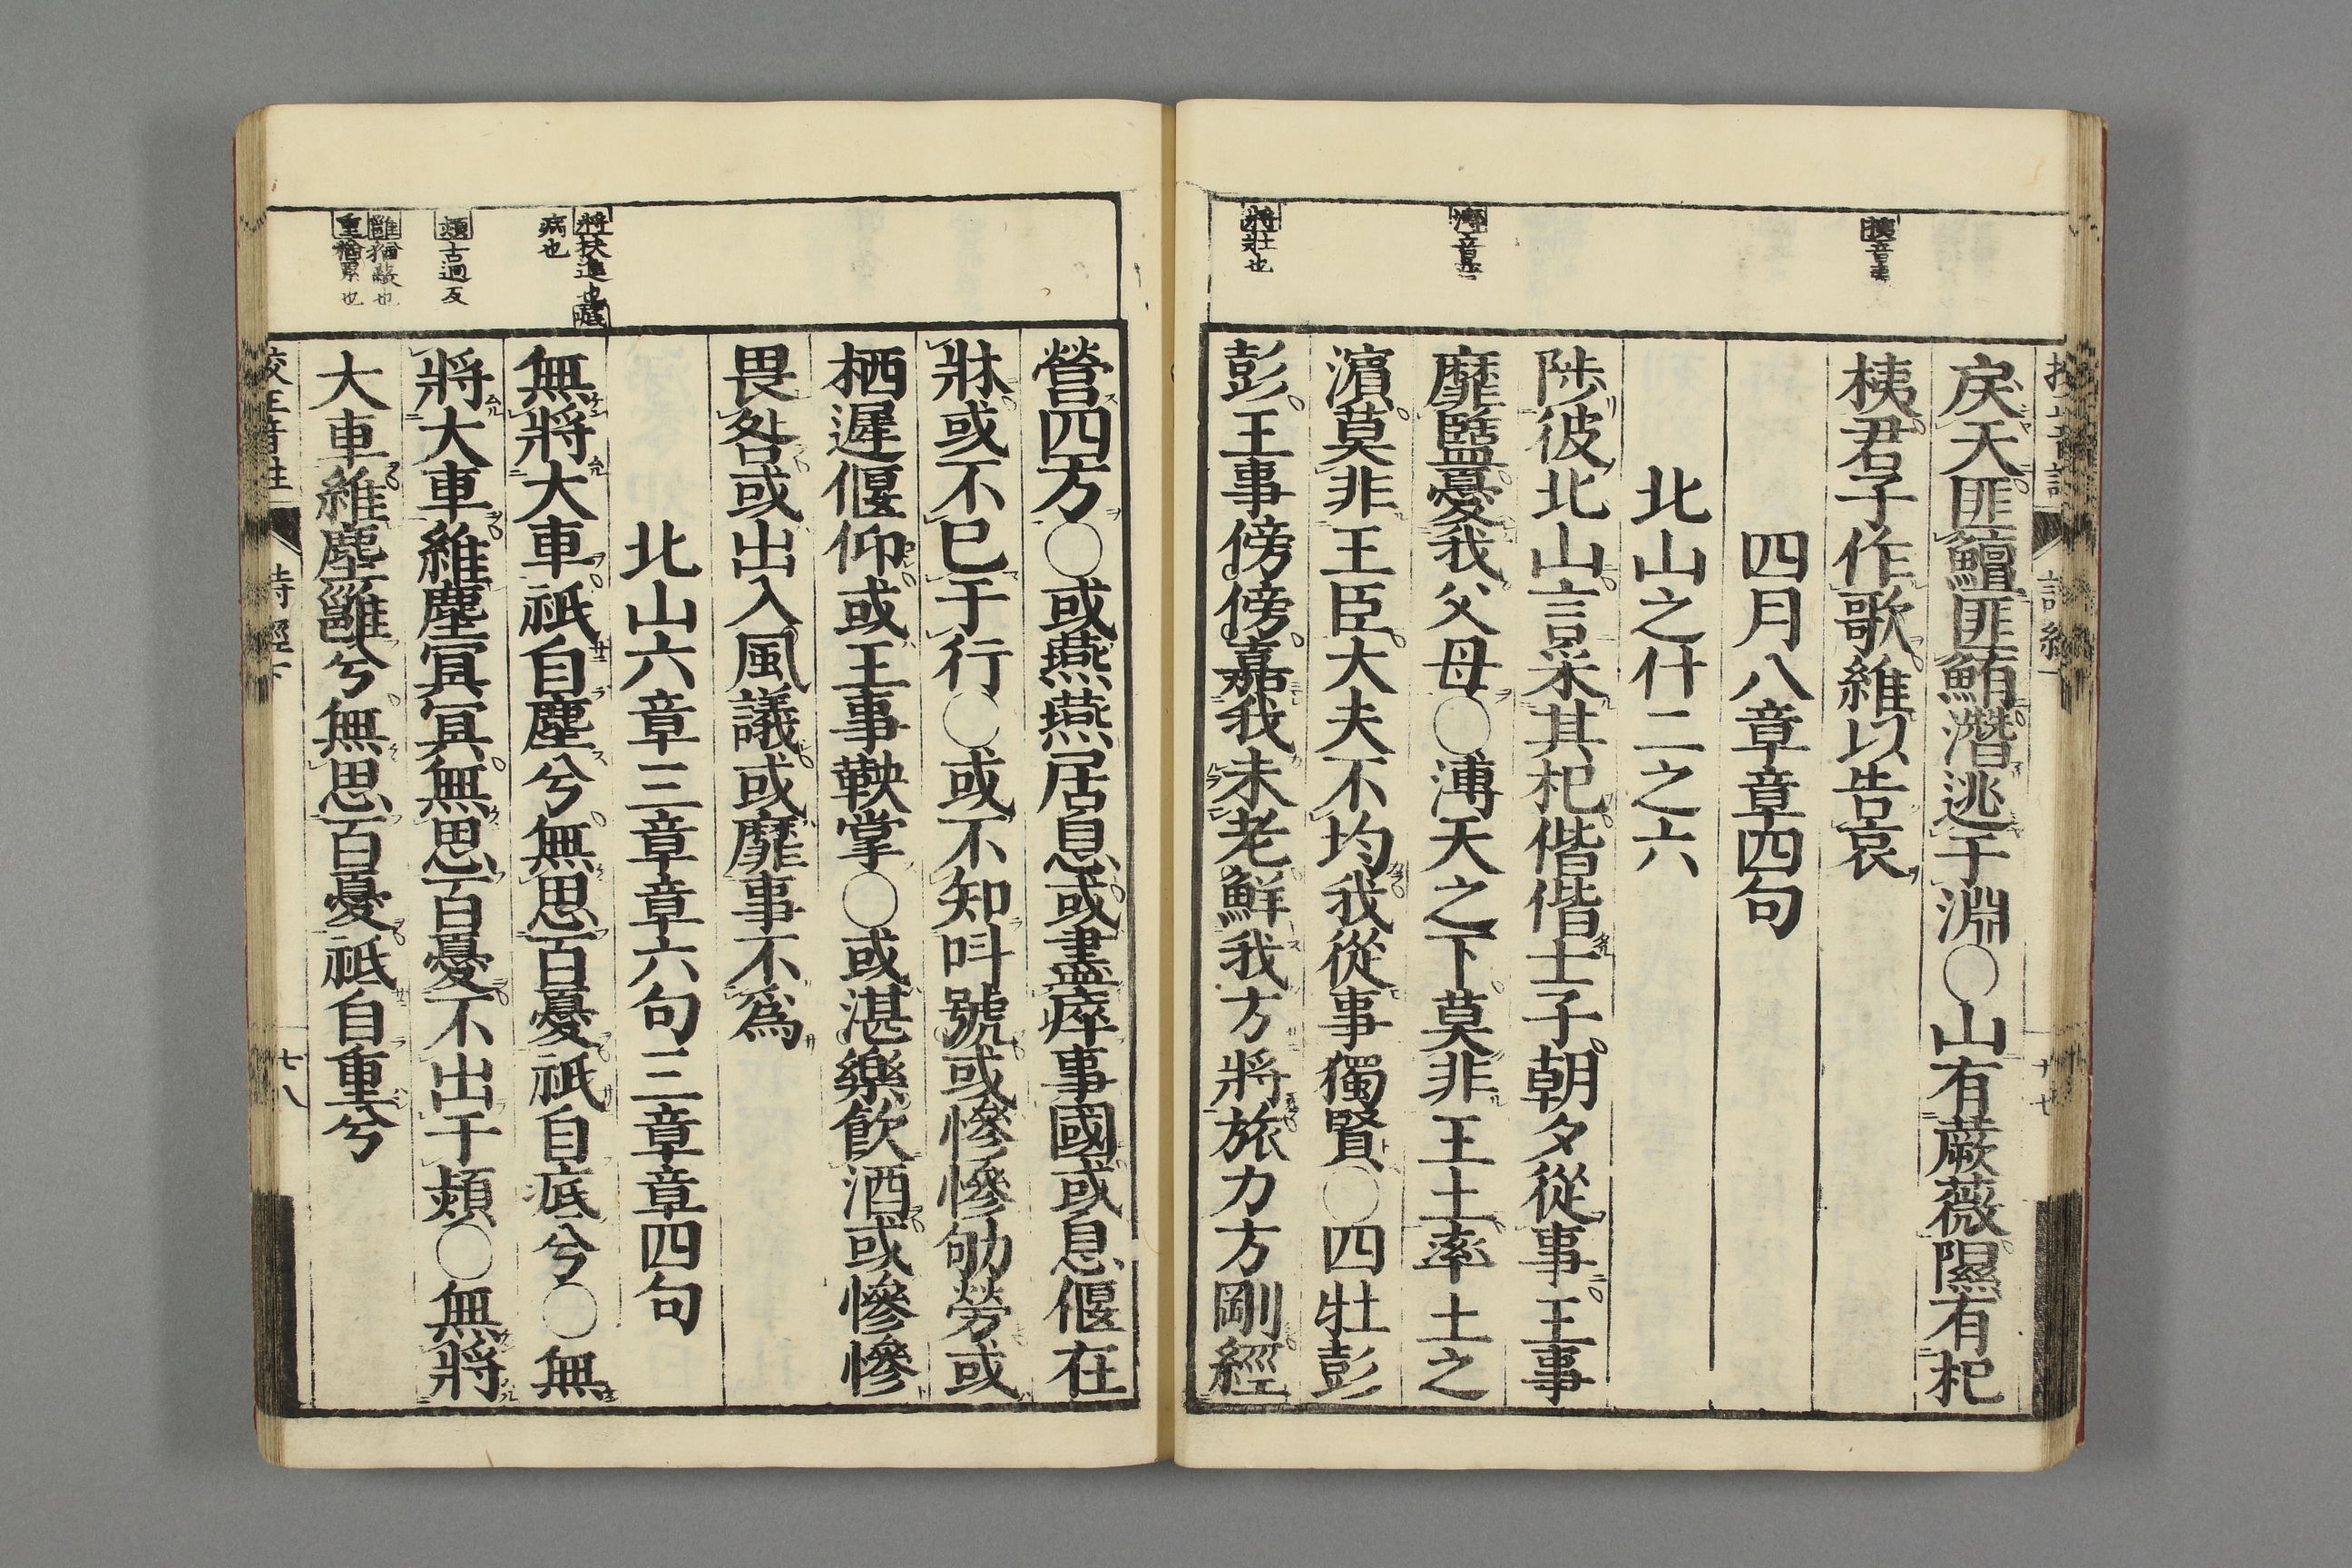 戾天匪鱣匪鮪潛逃于淵○山有蕨薇隰有杞
桋君子作歌維以告哀
四月八章章四句
北山之什二之六
陟彼北山言采其杞偕偕士子朝夕從事王事
靡盬憂我父母○溥天之下莫非王土率土之
濵莫非王臣大夫不均我從事獨賢○四牡彭
彭王事傍傍嘉我未老鮮我方將旅力方剛經
桋音夷
將壯也
營四方○或燕燕居息或盡瘁事國或息偃在
牀或不已于行○或不知叫號或慘慘劬勞或
栖遲偃仰或王事鞅掌○或湛樂飲酒或慘慘
畏咎或出入風議或靡事不爲
北山六章三章章六句三章章四句
無將大車祇自塵兮無思百憂祇自疧兮○無
將大車維塵冥冥無思百憂不出于熲○無將
大車維塵雝兮無思百憂祇自重兮
將扶進也疧
病也
熲古迥反
雝猶蔽也
重猶累也
七八